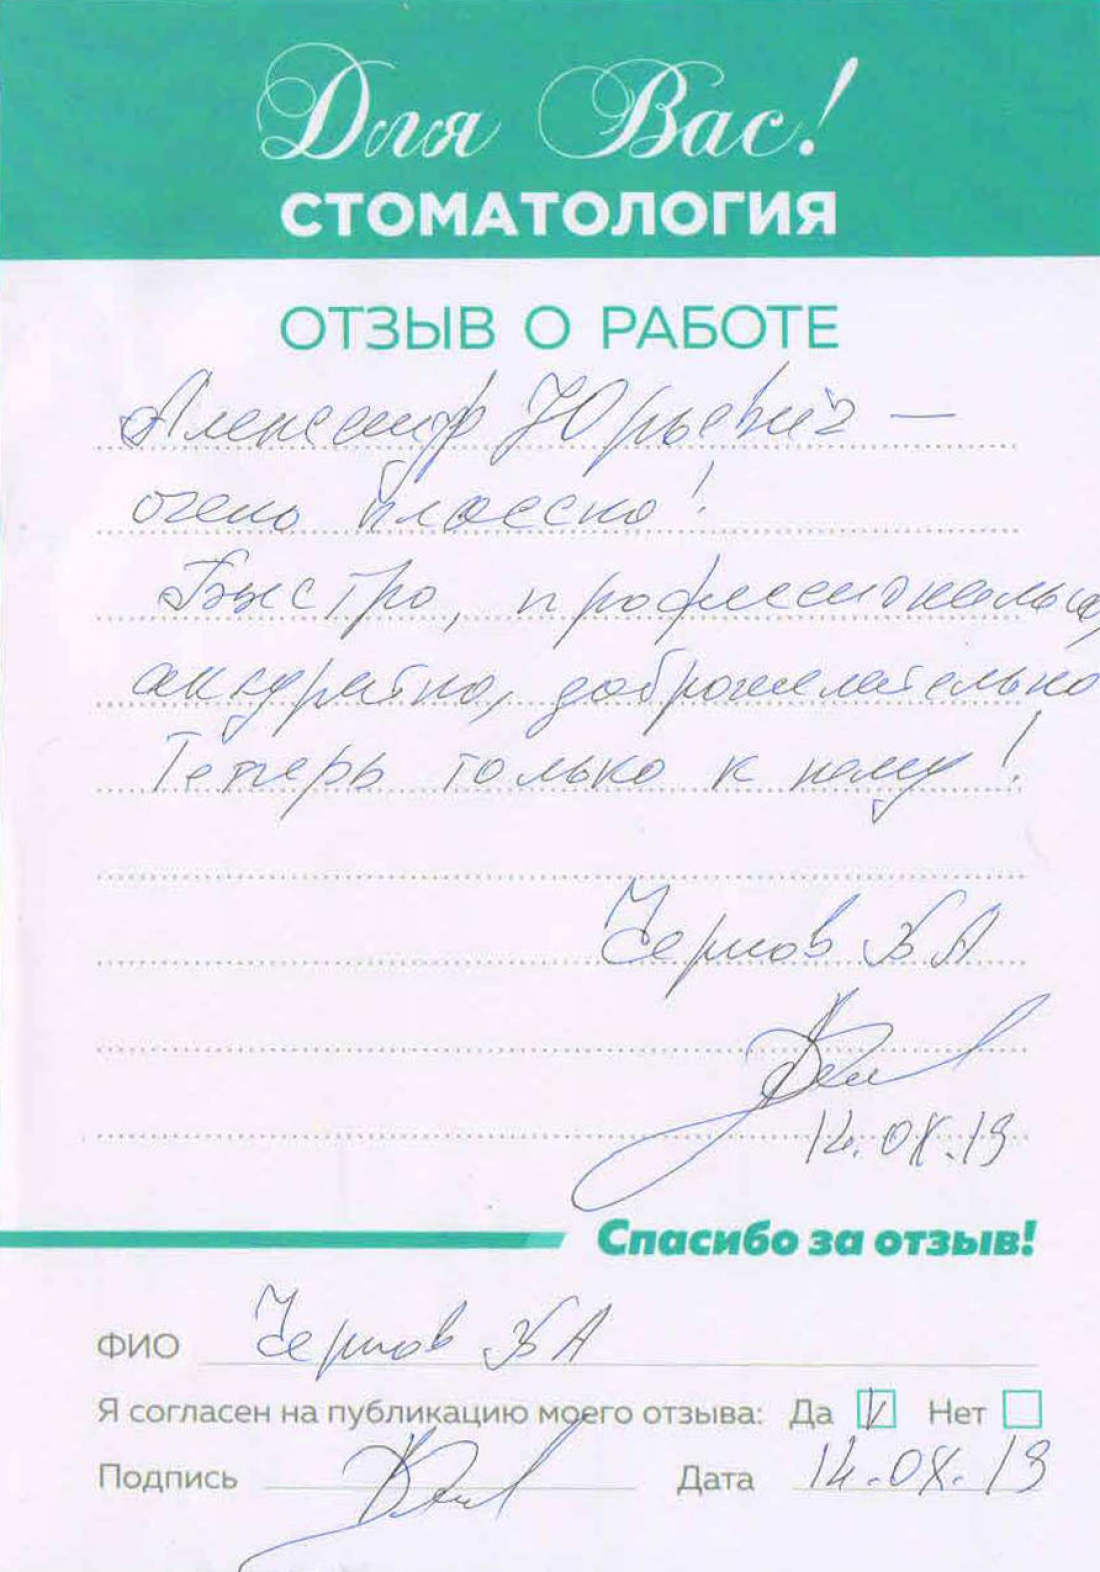 Для Вас!
СТОМАТОЛОГИЯ
ОТЗЫВ О РАБОТЕ
Александр Юрьевич —
очень классно!
Быстро, профессионально,
аккуратно, доброжелательно
Теперь только к нему!
Чернов В А
14.08.19
Спасибо за отзыв!
ФИО Чернов В А
Я согласен на публикацию моего отзыва: Да V Нет
Подпись Дата 14.08.19